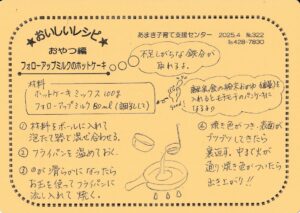 ★おいしいレシピ★
おやつ編
フォローアップミルクのホットケーキ
あまぎ子育て支援センター 2025.4 №322
℡428-7830
不足しがちな鉄分が
取れるよ。
材料
ホットケーキミックス 100g
フォローアップミルク 80ml(調乳して)
離乳食の
を
入れるともちもちのパンケーキに
なるよ♪
① 材料をボールに入れて
泡だて器で混ぜ合わせる。
② フライパンを温めておく。
③ ①が滑らかになったら
お玉を使ってフライパンに
流し入れて焼く。
④ 焼き色がつき、表面が
プツプツしてきたら
裏返す。中まで火が
通り焼き色がついたら
出き上がり!!